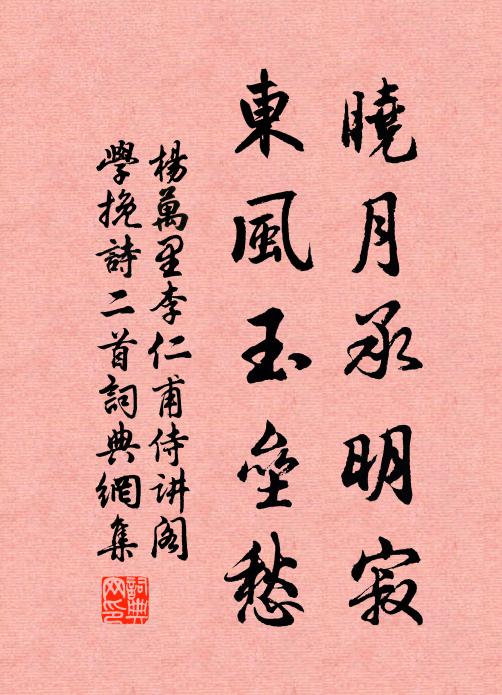 曉月承明寂
東風玉壘愁
楊萬里李仁甫侍讲阁
學挽詩二首詞典網集
詞典网印